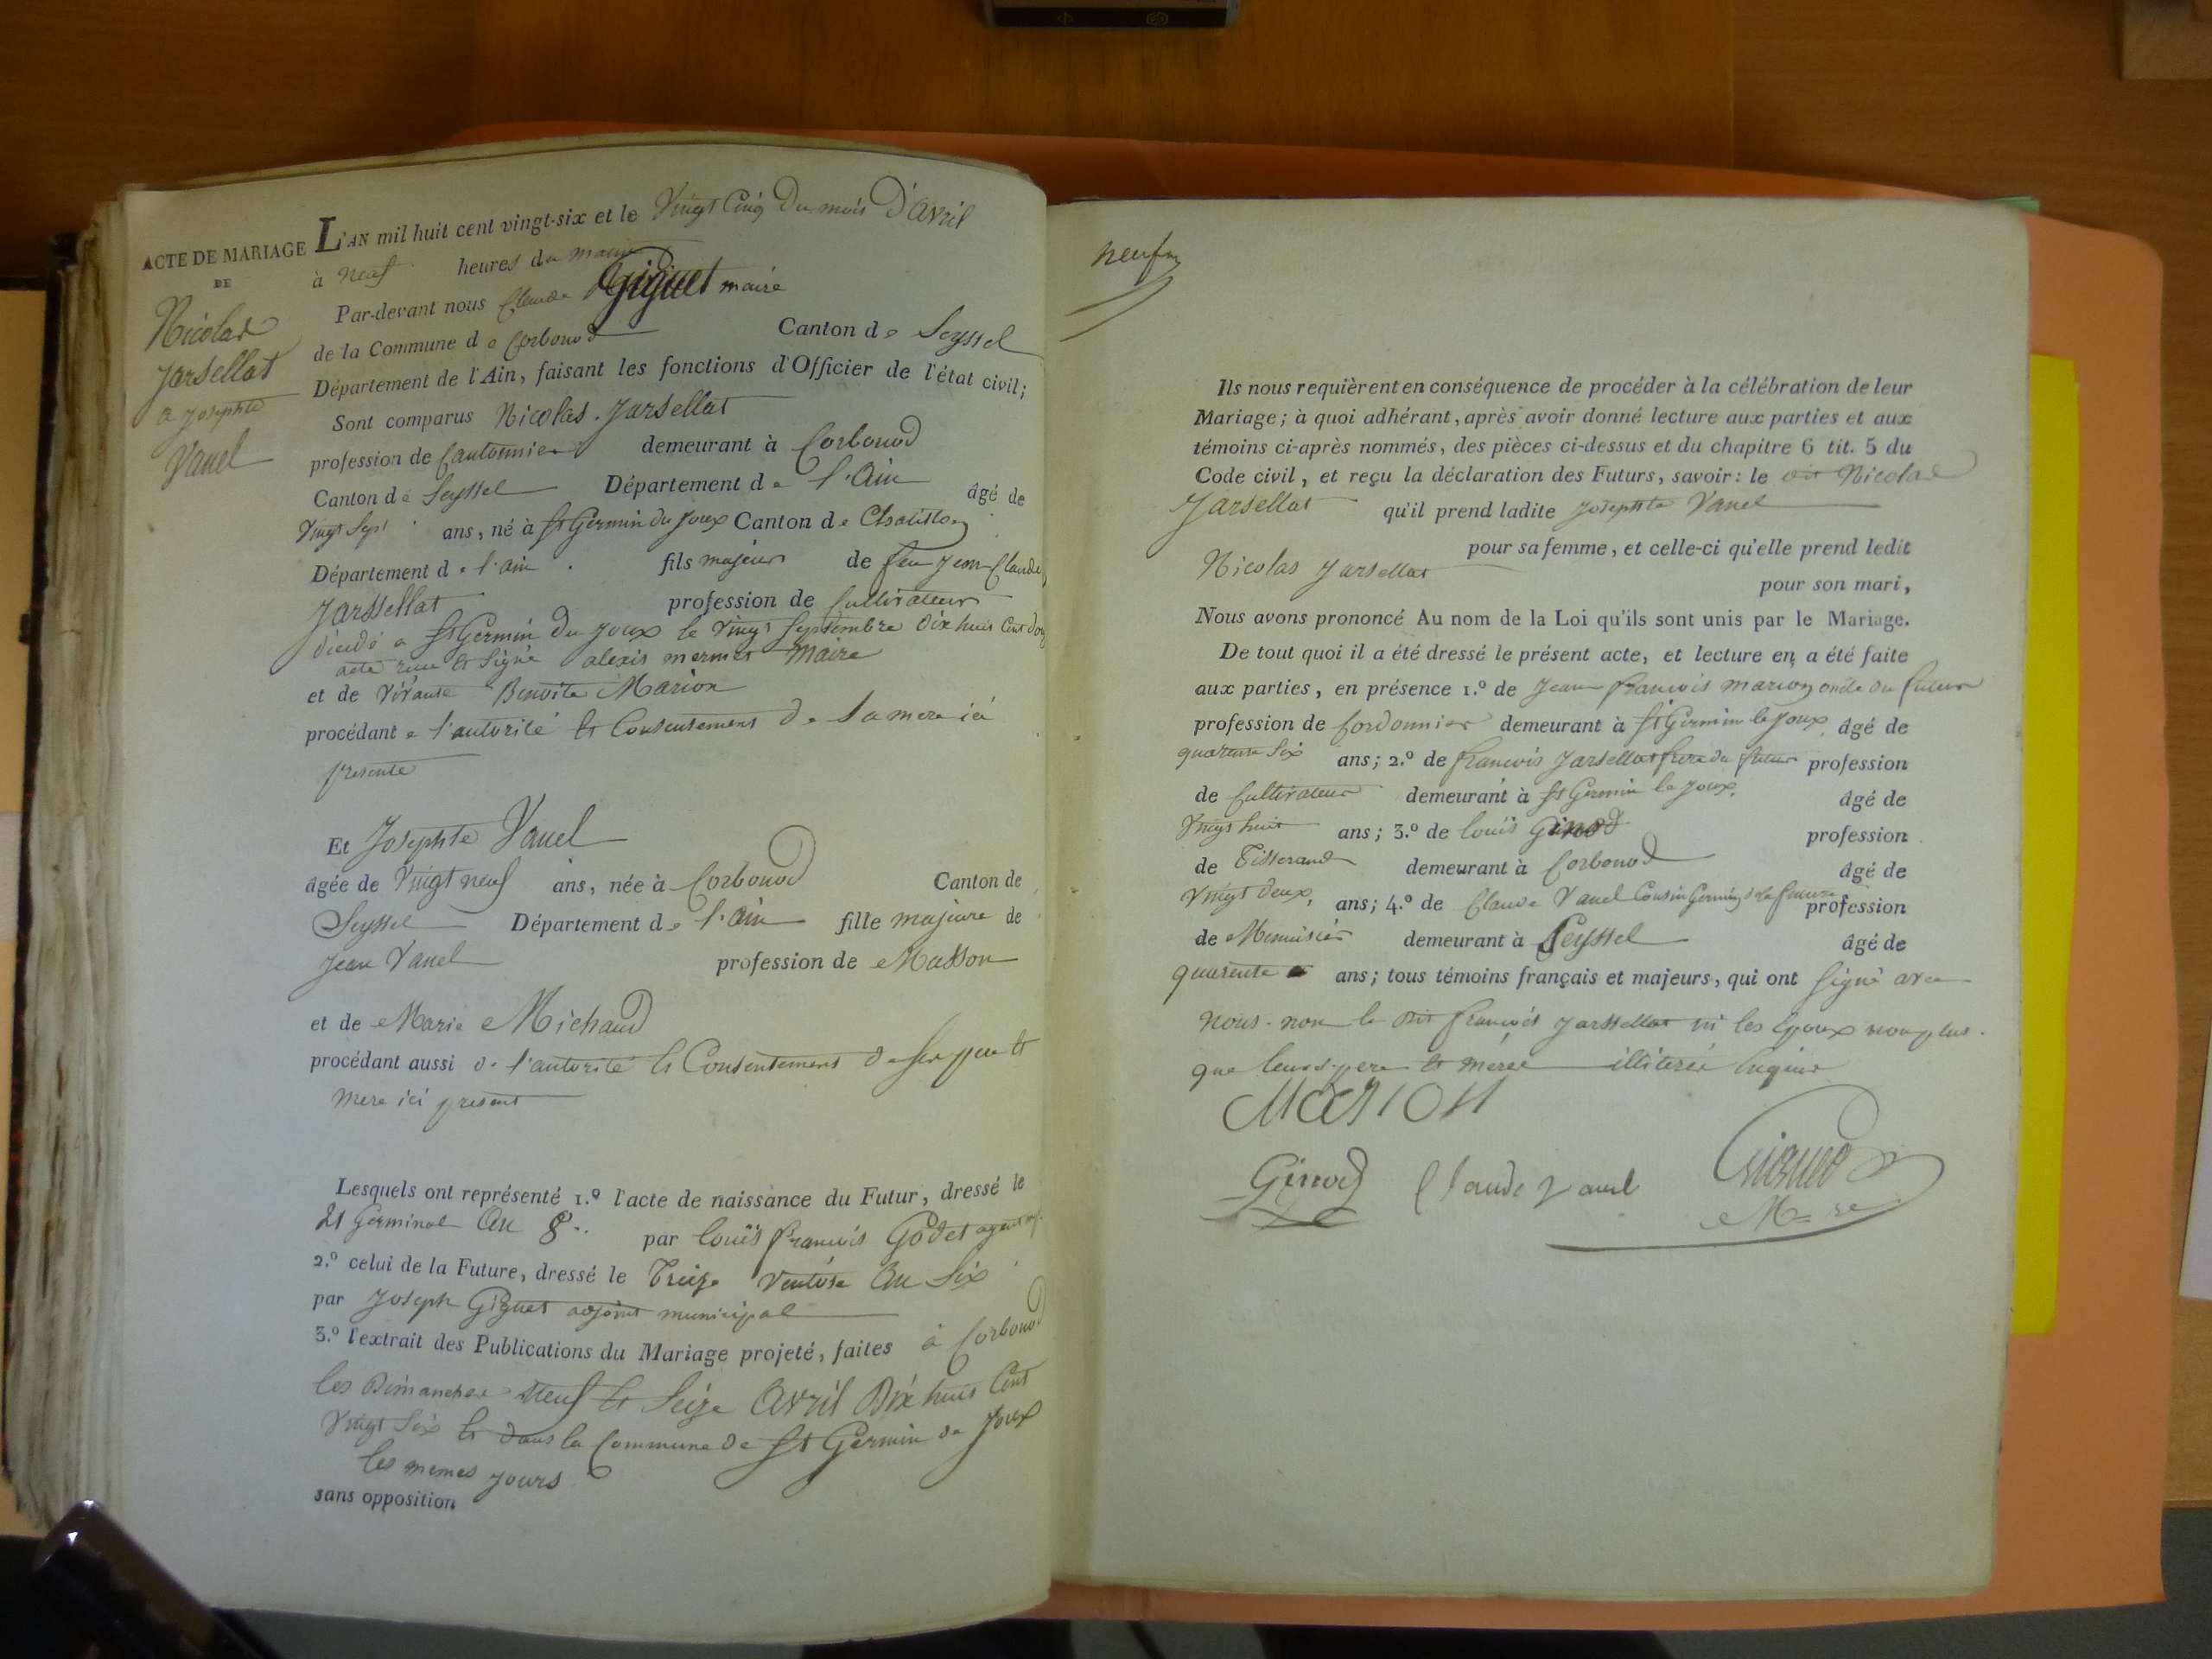 ACTE DE MARIAGE
DE
Nicolas
Jarsellat
a Josephte
Vanel
L'AN mil huit cent vingt-six et le Vingt Cinq Du mois D'avril
à neuf heures du matin
Par-devant nous Claude Giguet maire
de la Commune de Corbonod Canton de Seyssel
Département de l'Ain, faisant les fonctions d'Officier de l'état civil;
Sont comparus Nicolas Jarsellat
profession de Cantonnier demeurant à Corbonod
Canton de Seyssel Département de l'Ain âgé de
Vingt Sept ans, né à St Germin du Joux Canton de Chatillon
Département de l'ain fils majeur de feu Jean Claude
Jarssellat profession de Cultivateur
dicidé a St Germin Du Joux le Vingt Septembre Dix huit Cent
acte recu et Signé alexis mermet Maire
et de Vivante Benoite Marion
procédant de l'autorité et Consentement de Sa mere ici
presente
Et Josephte Vanel
âgée de Vingt neuf ans, née à Corbonod Canton de
Seyssel Département de l'Ain fille majeure de
Jean Vanel profession de Masson
et de Marie Michaud
procédant aussi de l'autorité et Consentement de Ses pere et
mere ici present
Lesquels ont représenté 1.º l'acte de naissance du Futur, dressé le
21 Germinal an 8 par Louis francois Godet agent
2.º celui de la Future, dressé le Treize Ventôse an Six
par Joseph Giguet adjoint municipal
3.º l'extrait des Publications du Mariage projeté, faites à Corbonod
les Dimanches neuf et Seize Avril Dix huit Cent
Vingt Six et dans la Commune de St Germin de Joux
les memes jours
sans opposition
neuf
Ils nous requièrent en conséquence de procéder à la célébration de leur
Mariage; à quoi adhérant, après avoir donné lecture aux parties et aux
témoins ci-après nommés, des pièces ci-dessus et du chapitre 6 tit. 5 du
Code civil, et reçu la déclaration des Futurs, savoir: le dit Nicolas
Jarsellat qu'il prend ladite Josephte Vanel
pour sa femme, et celle-ci qu'elle prend ledit
Nicolas Jarsellat pour son mari,
Nous avons prononcé Au nom de la Loi qu'ils sont unis par le Mariage.
De tout quoi il a été dressé le présent acte, et lecture en a été faite
aux parties, en présence 1.º de Jean francois marion oncle du futur
profession de Cordonnier demeurant à St Germin le Joux âgé de
quarente Six ans; 2.º de francois Jarsellat frere du futur profession
de Cultivateur demeurant à St Germin le Joux, âgé de
Vingt huit ans; 3.º de Louis Ginod profession
de Tisserand demeurant à Corbonod âgé de
Vingt deux, ans; 4.º de Claude Vanel Cousin Germin de la future profession
de Menuisier demeurant à Seyssel âgé de
quarente ans; tous témoins français et majeurs, qui ont Signé avec
nous. non le dit francois Jarssellat ni les Epoux non plus
que leurs pere et meree illiteréé Enquis
Marion
Ginod Claude Vanel Giguet
M re